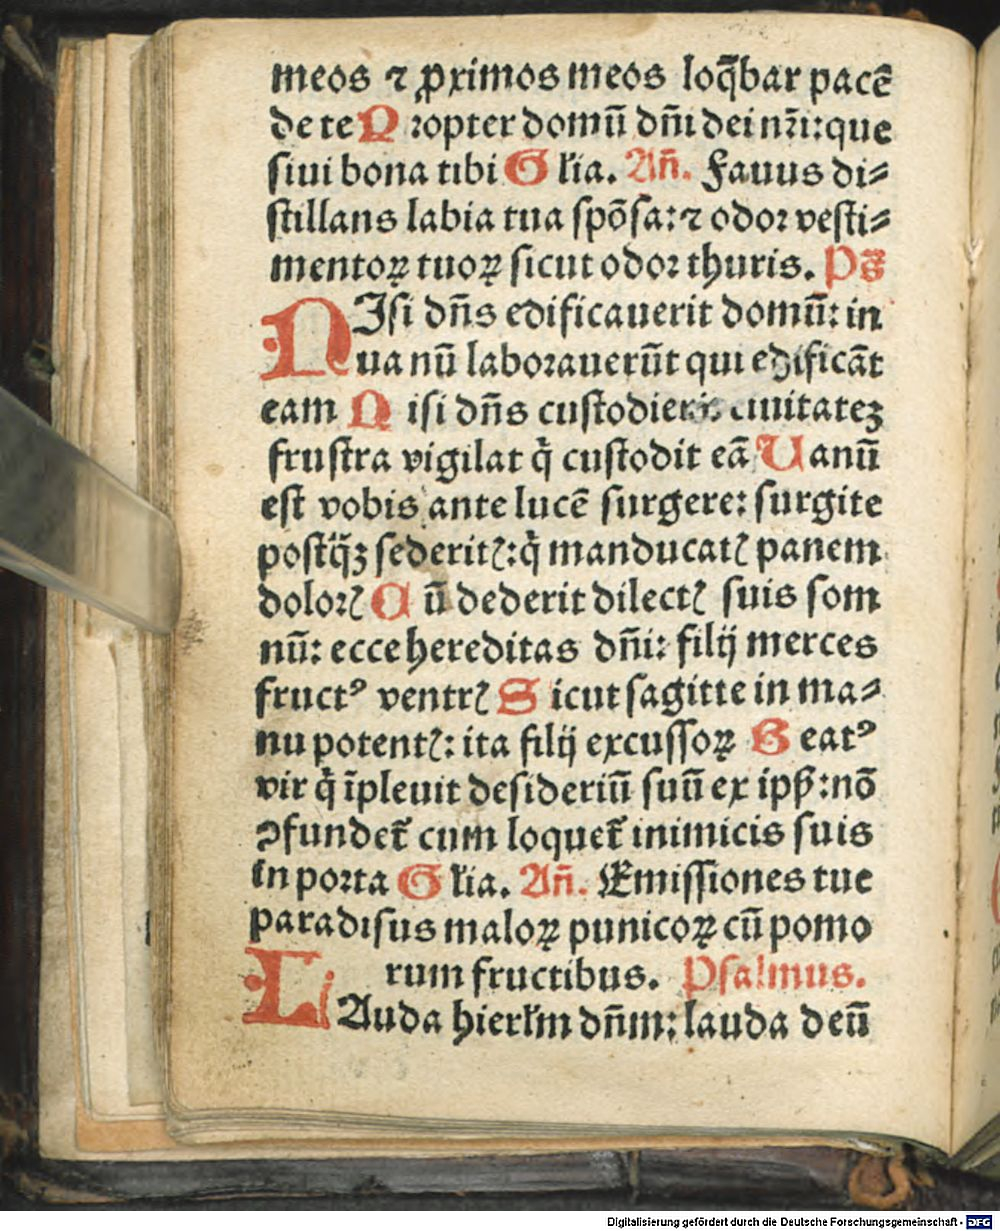 meos ⁊ ꝓximos meos loq̄bar pacē
de te Propter domū dn̄i dei nr̄i: que
siui bona tibi Gl̄ia. Añ. Fauus di⸗
stillans labia tua spōsa: ⁊ odor vesti⸗
mentoꝝ tuoꝝ sicut odor thuris. Ps̄
NIsi dn̄s edificauerit domū: in
uanū laborauerūt qui edificāt
eam Nisi dn̄s custodierit ciuitateꝫ
frustra vigilat q̇ custodit eā Uanū
est vobis ante lucē surgere: surgite
postq̄ꝫ sederitꝭ: q̇ manducatꝭ panem
dolorꝭ Cū dederit dilectꝭ suis som
nū: ecce hereditas dn̄i: filij merces
fructꝰ ventrꝭ Sicut sagitte in ma⸗
nu potentꝭ: ita filij excussoꝝ Beatꝰ
vir q̇ īpleuit desideriū suū ex ipẜ: nō
ꝯfundet᷑ cum loquet᷑ inimicis suis
in porta Gl̄ia. Añ. Emissiones tue
paradisus maloꝝ punicoꝝ cū pomo
rum fructibus. Psalmus.
LAuda hierl̄m dn̄m: lauda deū
Digitalisierung gefördert durch die Deutsche Forschungsgemeinschaft - DFG